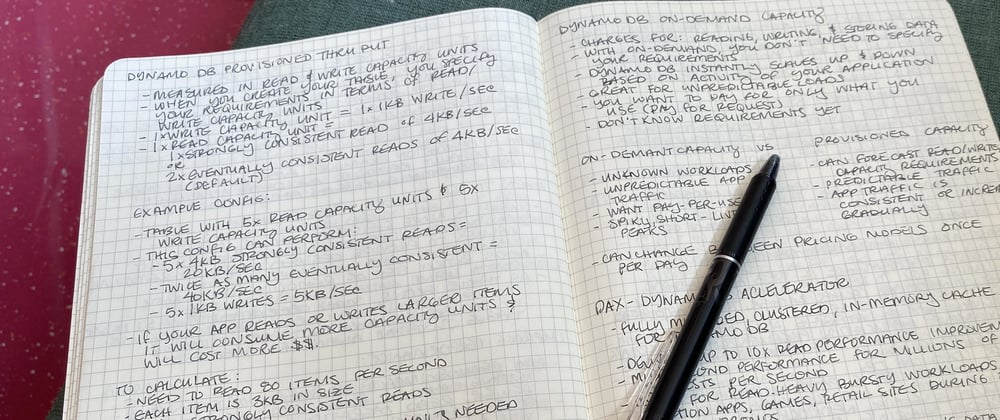 DYNAMO DB PROVISIONED THRU PUT
- MEASURED IN READ & WRITE CAPACITY UNITS
- WHEN YOU CREATE YOUR TABLE, YOU SPECIFY
YOUR REQUIREMENTS IN TERMS OF READ/
WRITE CAPACITY UNITS
- 1 x WRITE CAPACITY UNIT = 1 x 1KB WRITE/SEC
- 1 x READ CAPACITY UNIT =
1 x STRONGLY CONSISTENT READ OF 4KB/SEC
OR
2x EVENTUALLY CONSISTENT READS OF 4KB/SEC
(DEFAULT)
EXAMPLE CONFIG:
- TABLE WITH 5x READ CAPACITY UNITS & 5x
WRITE CAPACITY UNITS
- THIS CONFIG CAN PERFORM:
- 5x 4KB STRONGLY CONSISTENT READS =
20KB/SEC
- TWICE AS MANY EVENTUALLY CONSISTENT =
40KB/SEC
- 5x 1KB WRITES = 5KB/SEC
- IF YOUR APP READS OR WRITES LARGER ITEMS
IT WILL CONSUME MORE CAPACITY UNITS &
WILL COST MORE $$
TO CALCULATE:
- NEED TO READ 80 ITEMS PER SECOND
- EACH ITEM IS 3KB IN SIZE
STRONGLY CONSISTENT READS
UNITS NEEDED
DYNAMO DB ON-DEMAND CAPACITY
- CHARGES FOR: READING, WRITING, & STORING DATA
- WITH ON-DEMAND, YOU DON'T NEED TO SPECIFY
YOUR REQUIREMENTS
- DYNAMO DB INSTANTLY SCALES UP & DOWN
BASED ON ACTIVITY OF YOUR APPLICATION
- GREAT FOR UNPREDICTABLE READS
- YOU WANT TO PAY FOR ONLY WHAT YOU
USE (PAY FOR REQUEST)
- DON'T KNOW REQUIREMENTS YET
ON-DEMANT CAPACITY VS PROVISIONED CAPACITY
- UNKNOWN WORKLOADS
- UNPREDICTABLE APP
TRAFFIC
- WANT PAY-PER-USE
- SPIKY SHORT-
PEAKS
- CAN FORECAST READ/WRITE
CAPACITY REQUIREMENTS
- PREDICTABLE TRAFFIC
- APP TRAFFIC IS
CONSISTENT OR
GRADUALLY
- CAN CHANGE PRICING MODELS ONCE
PER DAY
DAX - ACCLERATOR
- FULLY CLUSTERED, IN-MEMORY CACHE
FOR DB
UP TO 10X READ PERFORMANCE
PERFORMANCE FOR MILLIONS OF
PER SECOND
FOR READ-HEAVY BURSTY WORKLOADS
APPS, GAMES, RETAIL SITES DURING